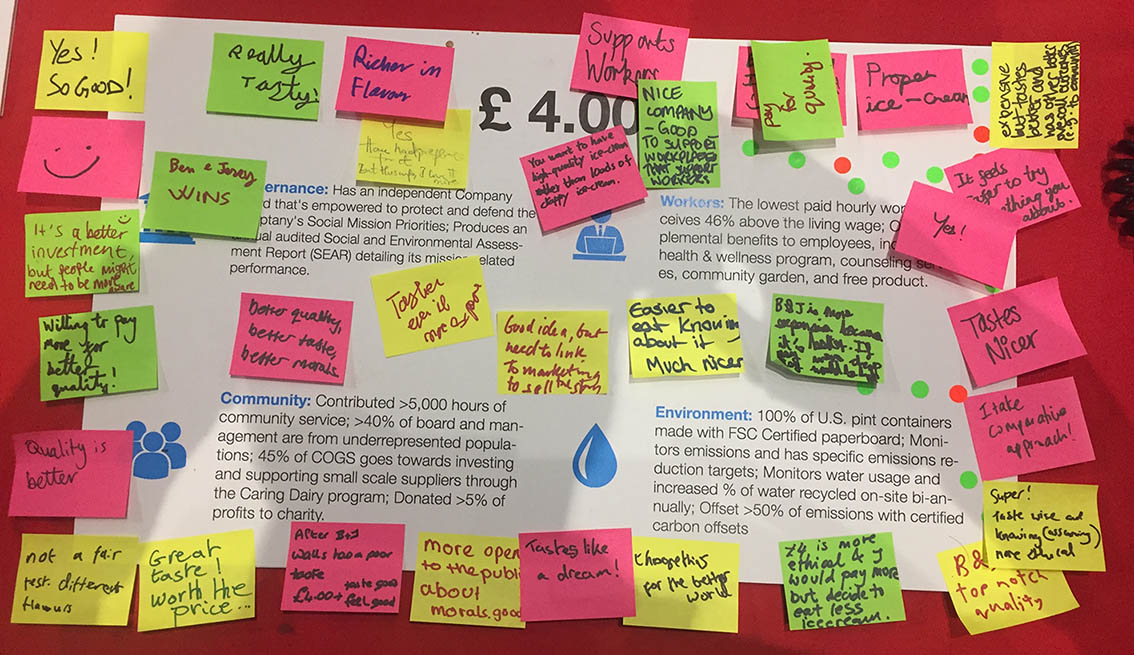 Yes!
SO GOOD!
Really
Tasty!
Richer in
Flavour
Supports
Workers
pay
for
quality
Proper
ice-cream
expensive
but tastes
better and
has other better
overall outcomes
(e.g. to community)
£ 4.00
Yes
NICE
COMPANY
- GOOD
TO SUPPORT
WORKPLACES
THAT SUPPORT
WORKERS
You want to have
high-quality ice-cream
rather than loads of
clappy ice-cream.
It feels
safer to try
something you
about.
Yes!
Ben & Jerry
WINS
ernance: Has an independent Company
rd that's empowered to protect and defend the
ptany's Social Mission Priorities; Produces an
ual audited Social and Environmental Assess-
ment Report (SEAR) detailing its mission related
performance.
Workers: The lowest paid hourly wor
ceives 46% above the living wage; O
plemental benefits to employees, inc
health & wellness program, counseling ser
es, community garden, and free product.
It's a better
investment,
but people might
need to be more
aware
Willing to pay
more for
better
quality!
better quality,
better taste,
better morals.
Tastier
even if
more
Good idea, but
need to link
to marketing
to sell the story
Easier to
eat knowing
about it
Much nicer
B&J is more
expensive because
it's better. If
Tastes
Nicer
Community: Contributed >5,000 hours of
community service; >40% of board and man-
agement are from underrepresented popula-
tions; 45% of COGS goes towards investing
and supporting small scale suppliers through
the Caring Dairy program; Donated >5% of
profits to charity.
Environment: 100% of U.S. pint containers
made with FSC Certified paperboard; Moni-
tors emissions and has specific emissions re-
duction targets; Monitors water usage and
increased % of water recycled on-site bi-an-
nually; Offset >50% of emissions with certified
carbon offsets
I take
comparative
approach!
Quality is
better
Super!
taste wise and
knowing (assuming)
more ethical
not a fair
test. different
flavours
Great
taste!
worth the
price...
After B+J
Walls has a poor
taste
£4.00 = taste good
feel good
more open
to the public
about
morals.good
Tastes like
a dream!
Choose this
for the better
world
£4 is more
ethical & I
would pay more
but decide to
eat less
icecream.
B&
top notch
quality